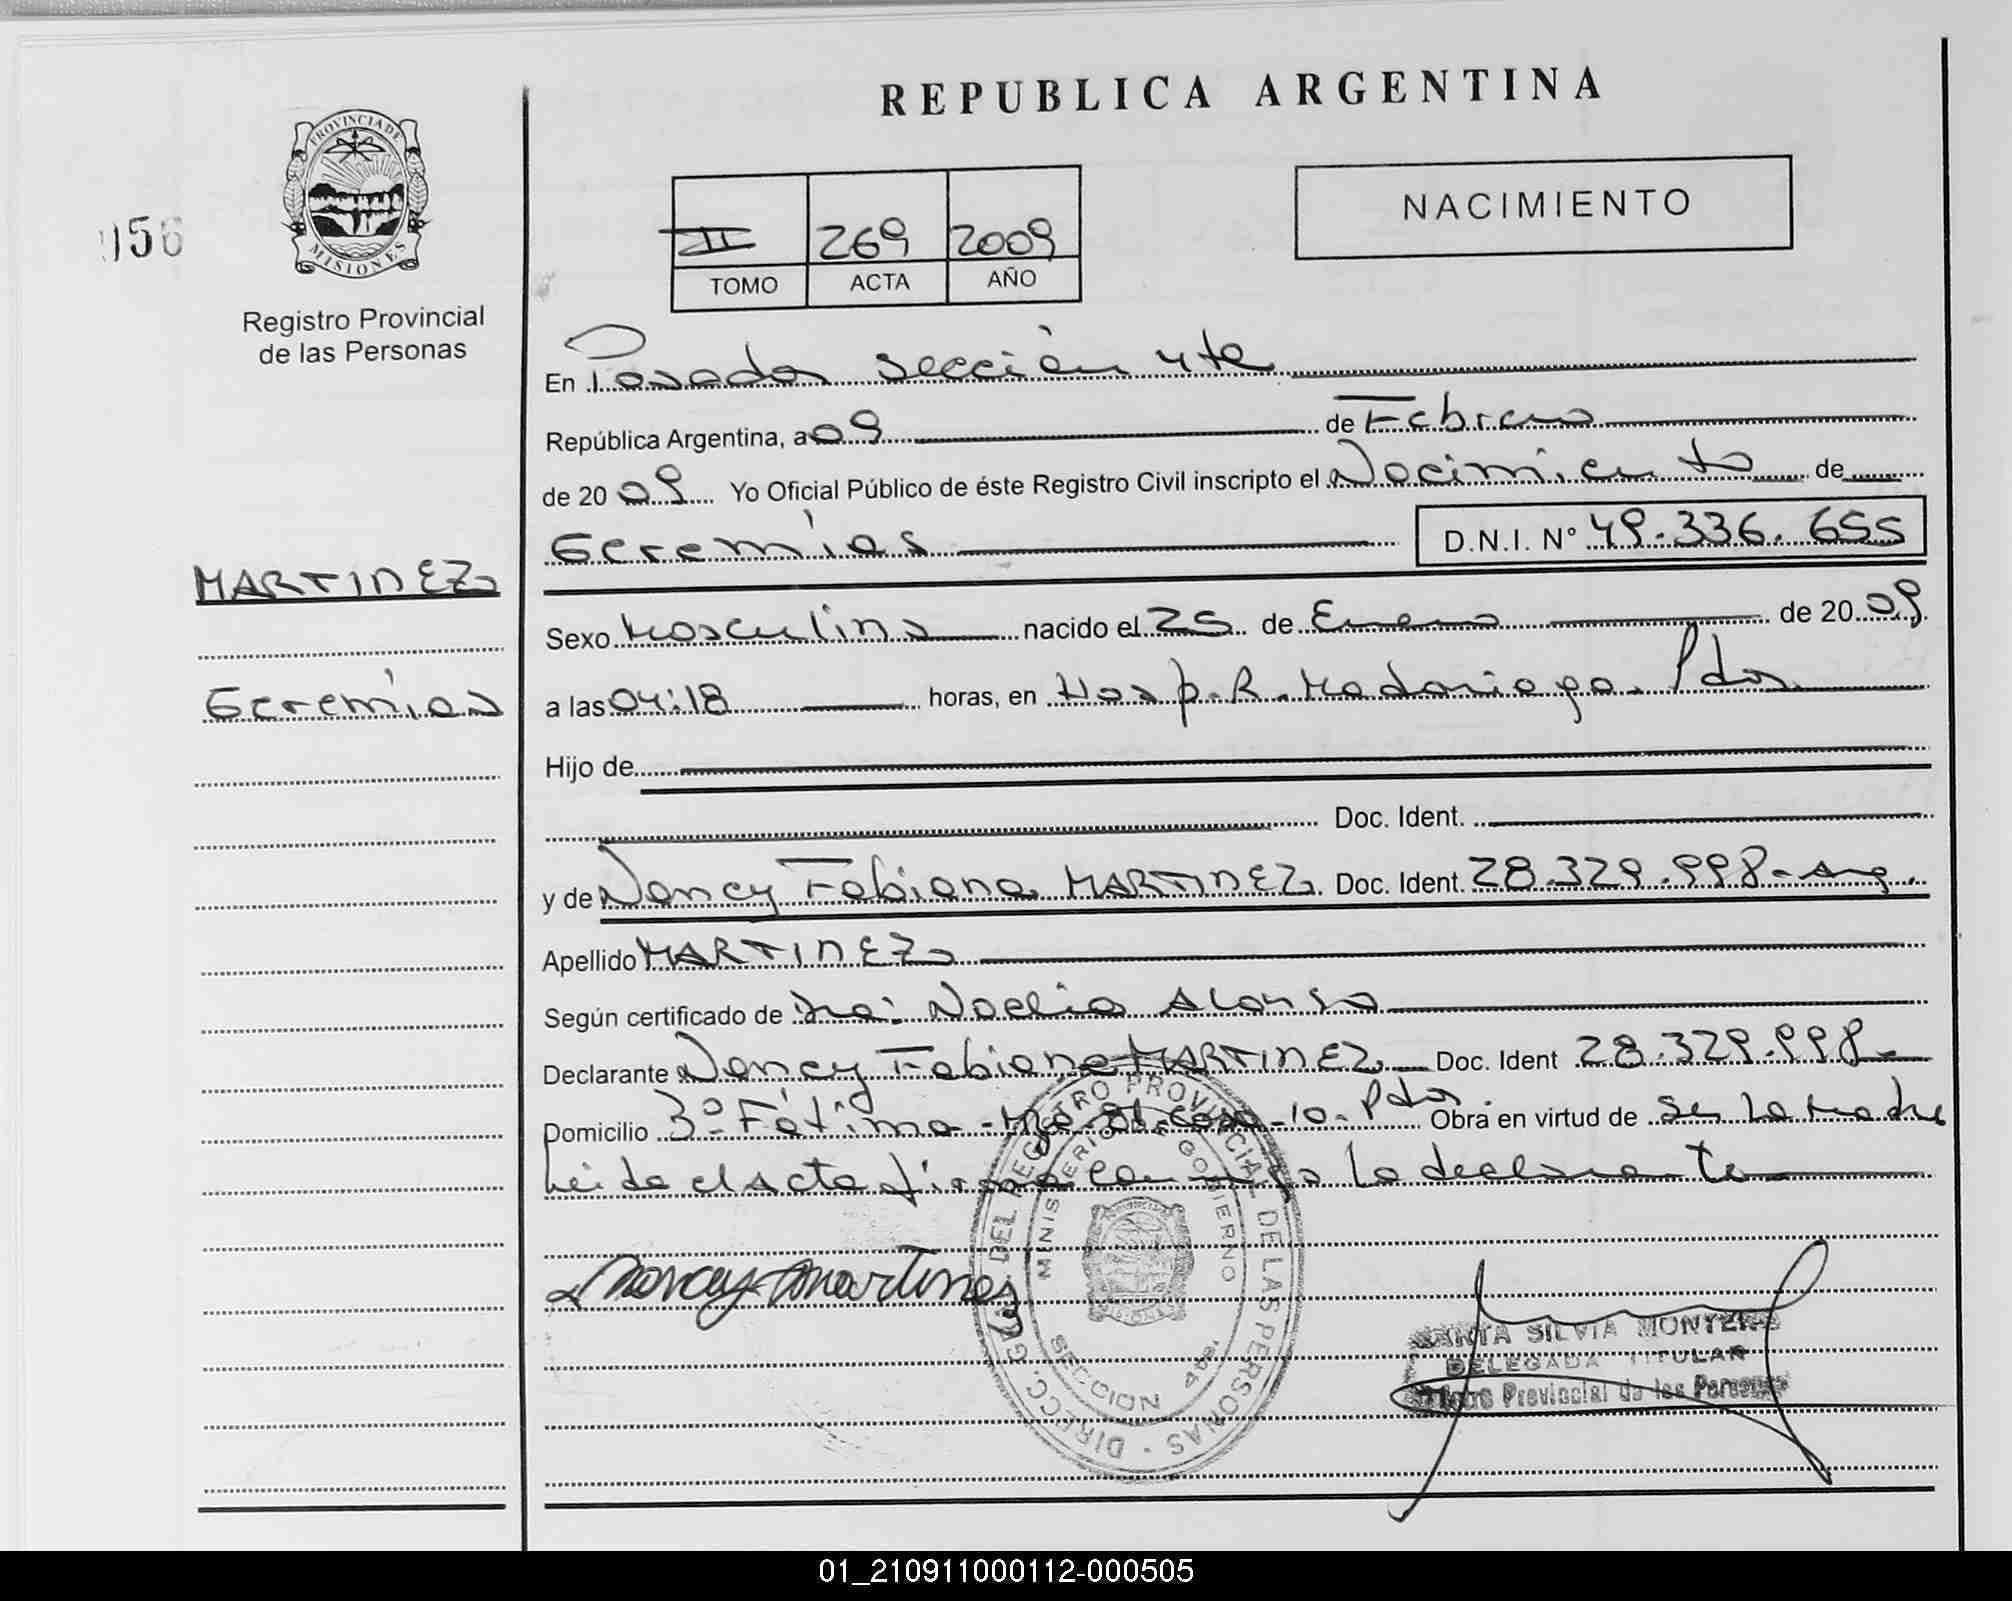 REPUBLICA ARGENTINA
PROVINCIA DE
MISIONES
156
Registro Provincial
de las Personas
NACIMIENTO
II 269 2009
TOMO ACTA AÑO
En Posadas sección 4ta
República Argentina, a 09 de Febrero
de 2009 Yo Oficial Público de éste Registro Civil inscripto el Nacimiento de
Geremías D.N.I. Nº 49.336.655
MARTINEZ
Geremías
Sexo Masculino nacido el 25 de Enero de 2009
a las 04:18 horas, en Hosp. R. Madariaga. Pdas.
Hijo de
Doc. Ident.
y de Nancy Fabiana MARTINEZ Doc. Ident. 28.329.998-Arg.
Apellido MARTINEZ
Según certificado de Dra: Noelia Alonso
Declarante Nancy Fabiana MARTINEZ Doc. Ident 28.329.998-
Domicilio Bº Fátima - casa 10. Pdas. Obra en virtud de ser la madre
Leída el acta firma conmigo la declarante
Nancy Martinez
DIRECC. GRAL. DEL REGISTRO PROVINCIAL DE LAS PERSONAS
MINISTERIO DE GOBIERNO
SECCION 4ta.
SILVIA MONTERO
DELEGADA TITULAR
Provincial de las Personas
01_210911000112-000505